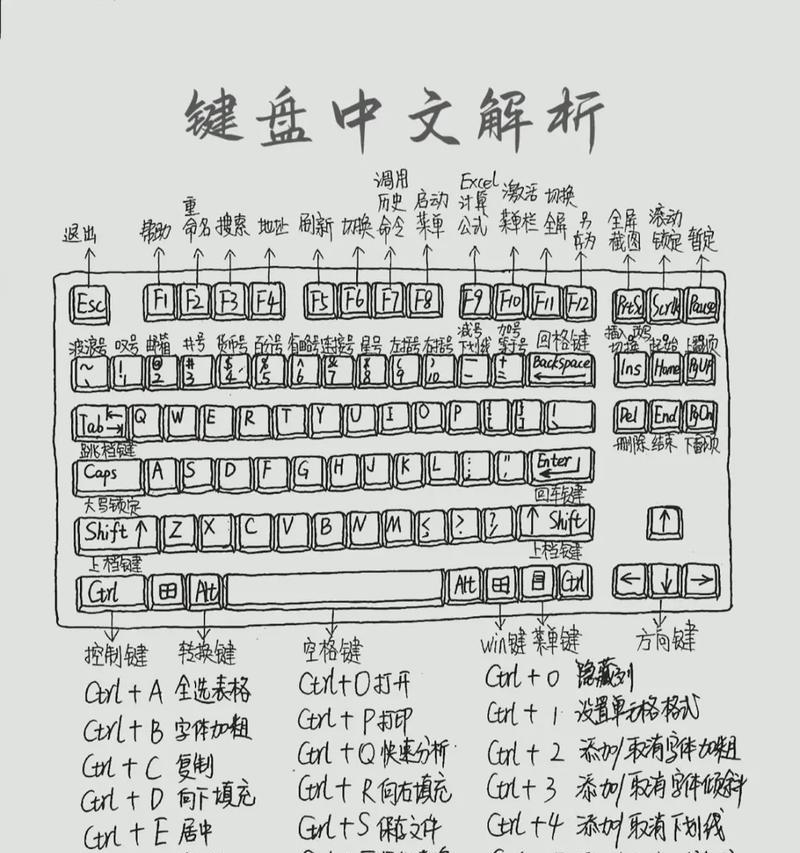 键盘中文解析
退出 帮助 重命名 搜索 地址 刷新 切换 调用历史命令 启动菜单 Excel计算公式 激活菜单栏 切换全屏 另存为 全屏截图 滚动锁定 暂定
Esc F1 F2 F3 F4 F5 F6 F7 F8 F9 F10 F11 F12 PrtSc Scrlk Pause
波浪号 叹号 邮箱 井号 百分号 省略号 连接号 星号 左括号 右括号 减号下划线 加号等于号 回格键 上翻页
~ ` ! 1 @ 2 # 3 $ 4 % 5 ^ 6 & 7 * 8 ( 9 ) 10 — - + = BackSpace Ins Home PgUP
Tab Q W E R T Y U I O P { [ } ] | \ Del End PgDn
跳档键 删除 结束 下翻页
Caps A S D F G H J K L : ; " ' Enter
大写锁定 回车键
Shift ↑ Z X C V B N M < > ? / ↑ Shift ↑
上档键 上档键
Ctrl Alt Alt Ctrl ← ↓ →
控制键 转换键 空格键 win键 菜单键 方向键
Ctrl + A 全选表格 Ctrl+O 打开 Ctrl + 0 隐藏列
Ctrl + B 字体加粗 Ctrl + P 打印 Ctrl + 1 设置单元格格式
Ctrl + C 复制 Ctrl + Q 快速分析 Ctrl + 2 添加/取消字体加粗
Ctrl + D 向下填充 Ctrl + R 向右填充 Ctrl + 3 添加/取消字体倾斜
Ctrl + E 居中 Ctrl + S 保存文件 Ctrl + 4 添加/取消下划线